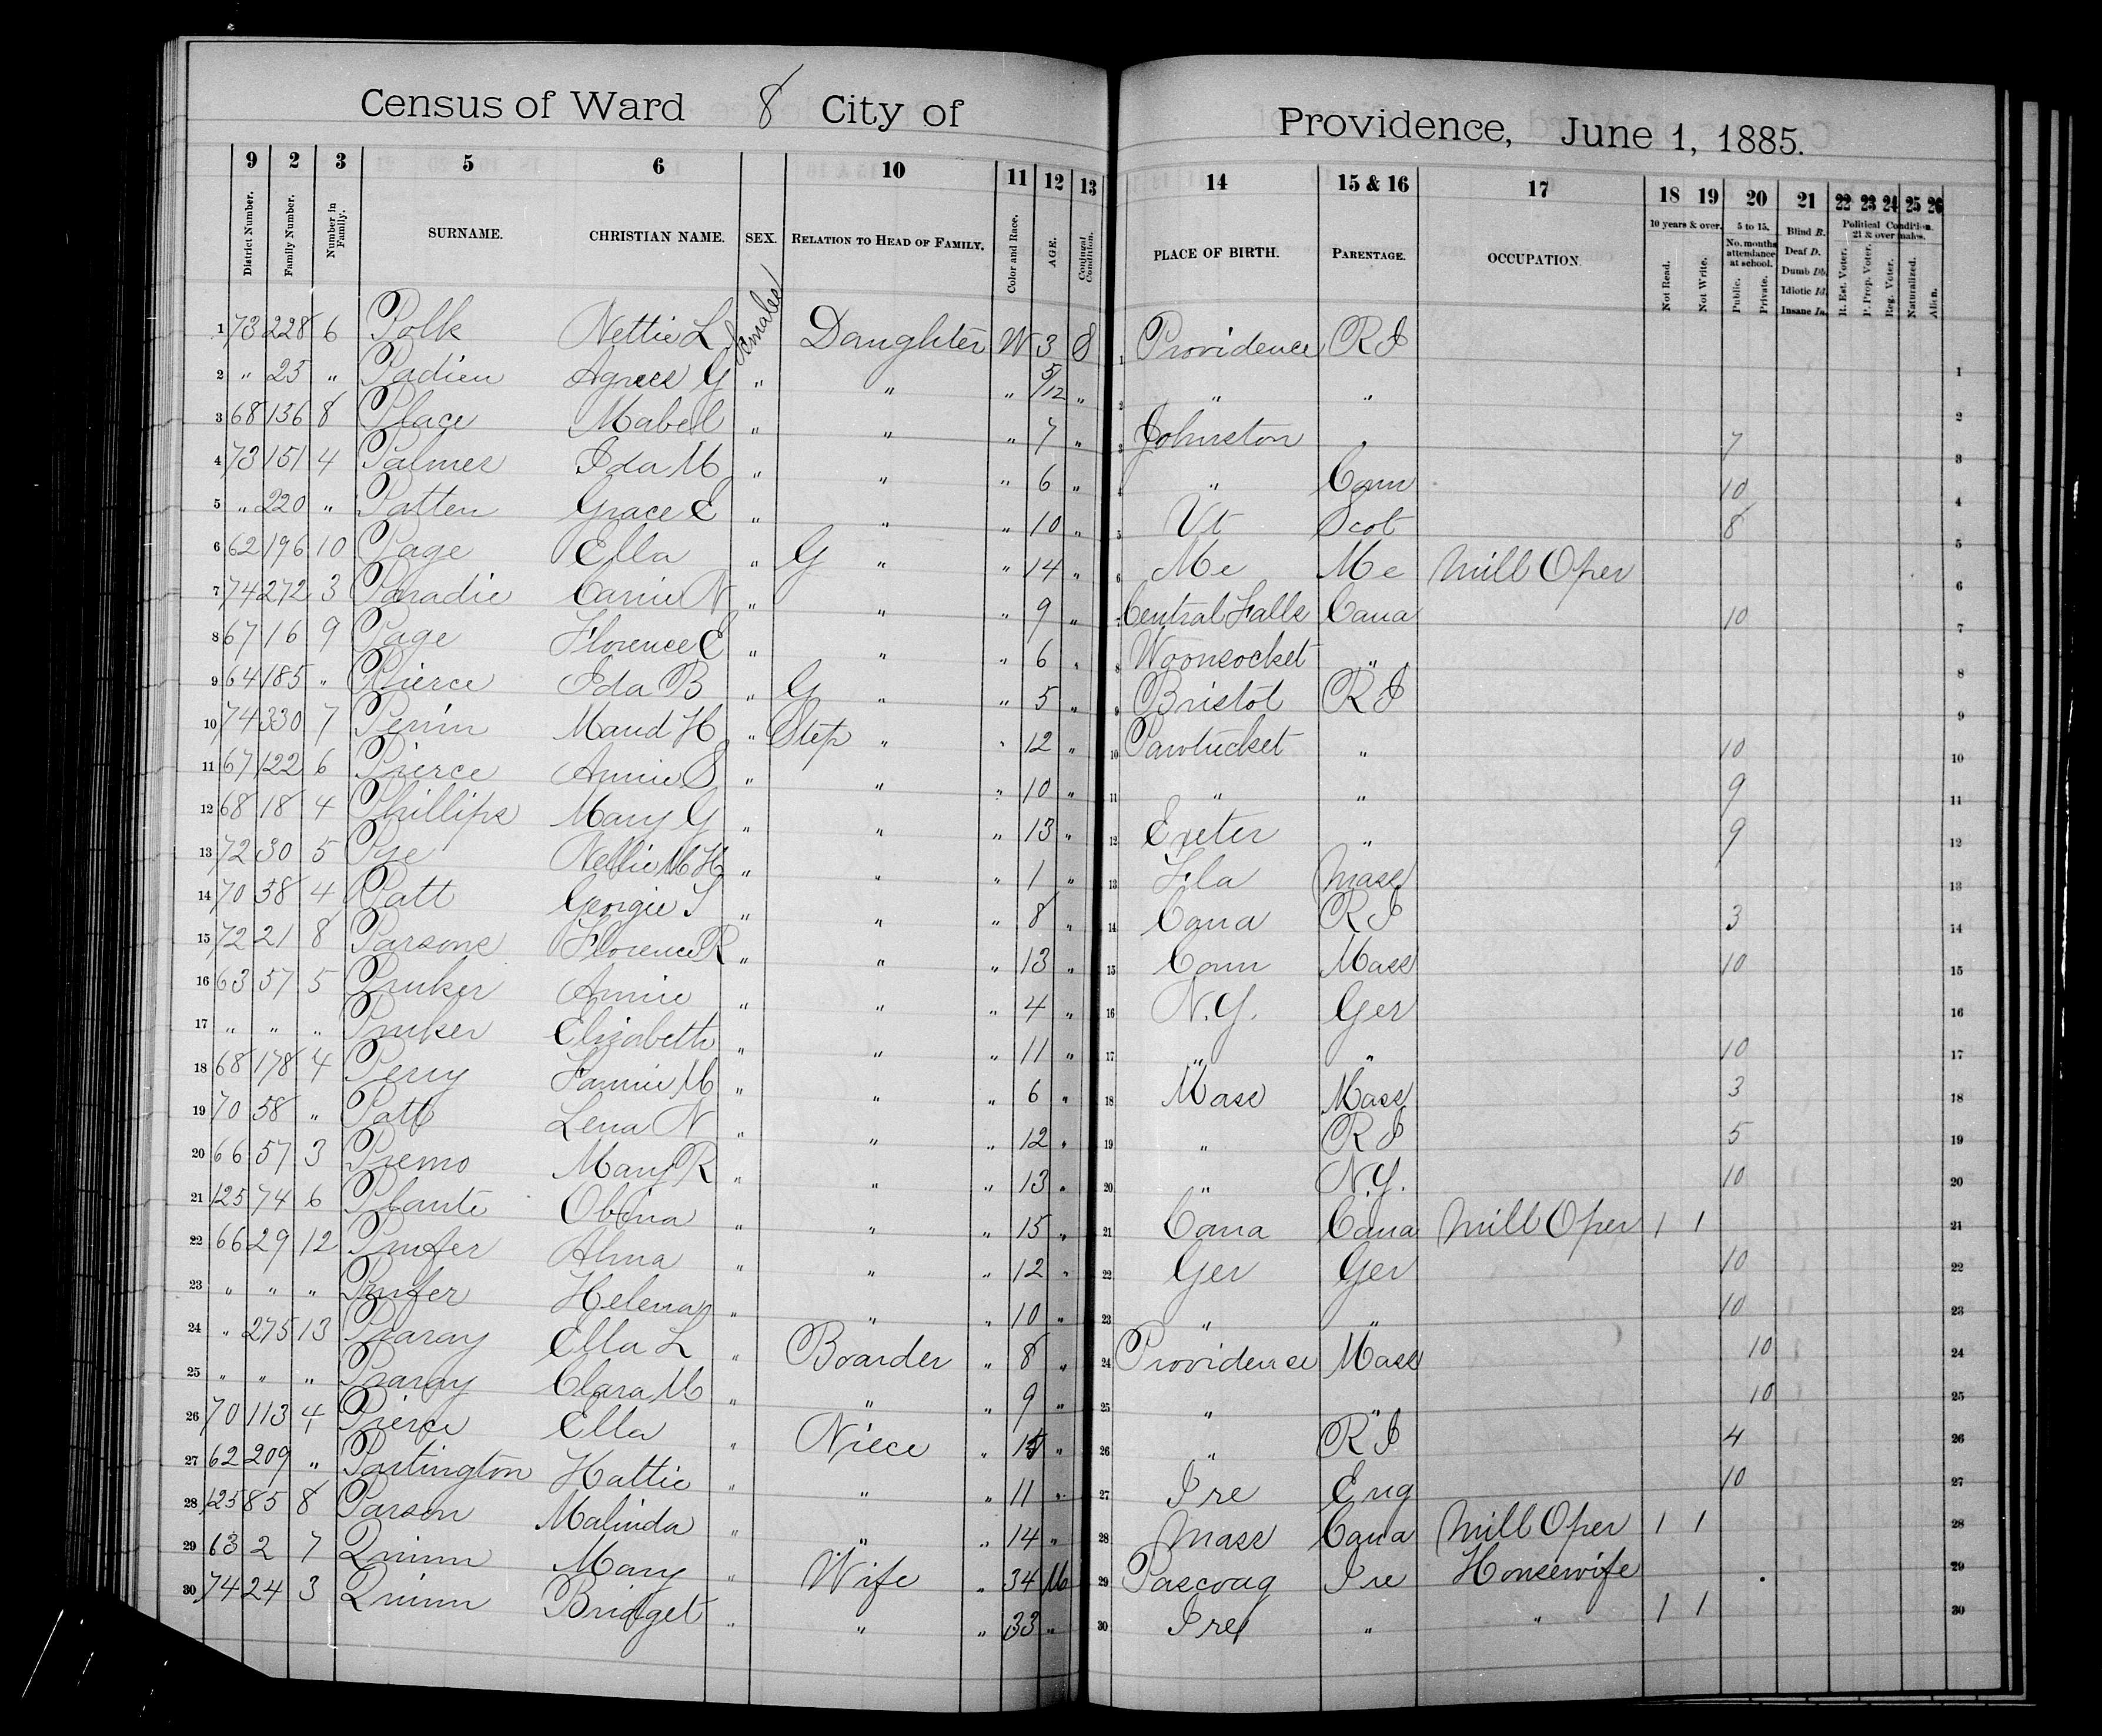 Census of Ward 8 City of Providence, June 1, 1885.
9 2 3 5 6 10 11 12 13 14 15 & 16 17 18 19 20 21 22 23 24 25 26
District Number. Family Number. Number in Family. SURNAME. CHRISTIAN NAME. SEX. RELATION TO HEAD OF FAMILY. Color and Race. AGE. Conjugal Condition. PLACE OF BIRTH. PARENTAGE. OCCUPATION. 10 years & over. Not Read. Not Write. 5 to 15. No. months attendance at school. Public. Private. Blind B. Deaf D. Dumb Db. Idiotic Id. Insane In. Political Condition. 21 & over males. R. Est. Voter. P. Prop. Voter. Reg. Voter. Naturalized. Alien.
1 73 228 6 Polk Nettie L Females Daughter W 3 S 1 Providence R I 1
2 " 25 " Padien Agnes G " " " 5/12 " 2 " " 2
3 68 136 8 Place Mabel " " " 7 " 3 Johnston " 7 3
4 73 151 4 Palmer Ida M " " " 6 " 4 " Conn 10 4
5 " 220 " Patten Grace E " " " 10 " 5 Vt Scot 8 5
6 62 196 10 Page Ella " G " " 14 " 6 Me Me Mill Oper 6
7 74 272 3 Paradie Carrie N " " " 9 " 7 Central Falls Cana 10 7
8 67 16 9 Page Florence E " " " 6 " 8 Woonsocket " 8
9 64 185 " Pierce Ida B " G " " 5 " 9 Bristol R I 9
10 74 330 7 Perrin Maud H " Step " " 12 " 10 Pawtucket " 10 10
11 67 122 6 Pierce Annie S " " " 10 " 11 " " 9 11
12 68 18 4 Phillips Mary G " " " 13 " 12 Exeter " 9 12
13 72 30 5 Pye Nellie M H " " " 1 " 13 Fla Mass 13
14 70 58 4 Patt Georgie S " " " 8 " 14 Cana R I 3 14
15 72 21 8 Parsons Florence R " " " 13 " 15 Conn Mass 10 15
16 63 57 5 Pruker Annie " " " 4 " 16 N.Y. Ger 16
17 " " " Pruker Elizabeth " " " 11 " 17 " " 10 17
18 68 178 4 Perry Fannie M " " " 6 " 18 Mass Mass 3 18
19 70 58 " Patt Lena N " " " 12 " 19 " R I 5 19
20 66 57 3 Premo Mary R " " " 13 " 20 " N.Y. 10 20
21 125 74 6 Plante Obina " " " 15 " 21 Cana Cana Mill Oper 1 1 21
22 66 29 12 Prufer Alma " " " 12 " 22 Ger Ger 10 22
23 " " " Prufer Helena " " " 10 " 23 " " 10 23
24 " 275 13 Praray Ella L " Boarder " 8 " 24 Providence Mass 10 24
25 " " " Praray Clara M " " " 9 " 25 " " 10 25
26 70 113 4 Pierce Ella " Niece " " 26 " R I 4 26
27 62 209 " Partington Hattie " " " 11 " 27 Ire Eng 10 27
28 125 85 8 Parson Malinda " " " 14 " 28 Mass Cana Mill Oper 1 1 28
29 63 2 7 Quinn Mary " Wife " 34 M 29 Pascoag Ire Housewife 29
30 74 24 3 Quinn Bridget " " " 33 " 30 Ire " " 1 1 30